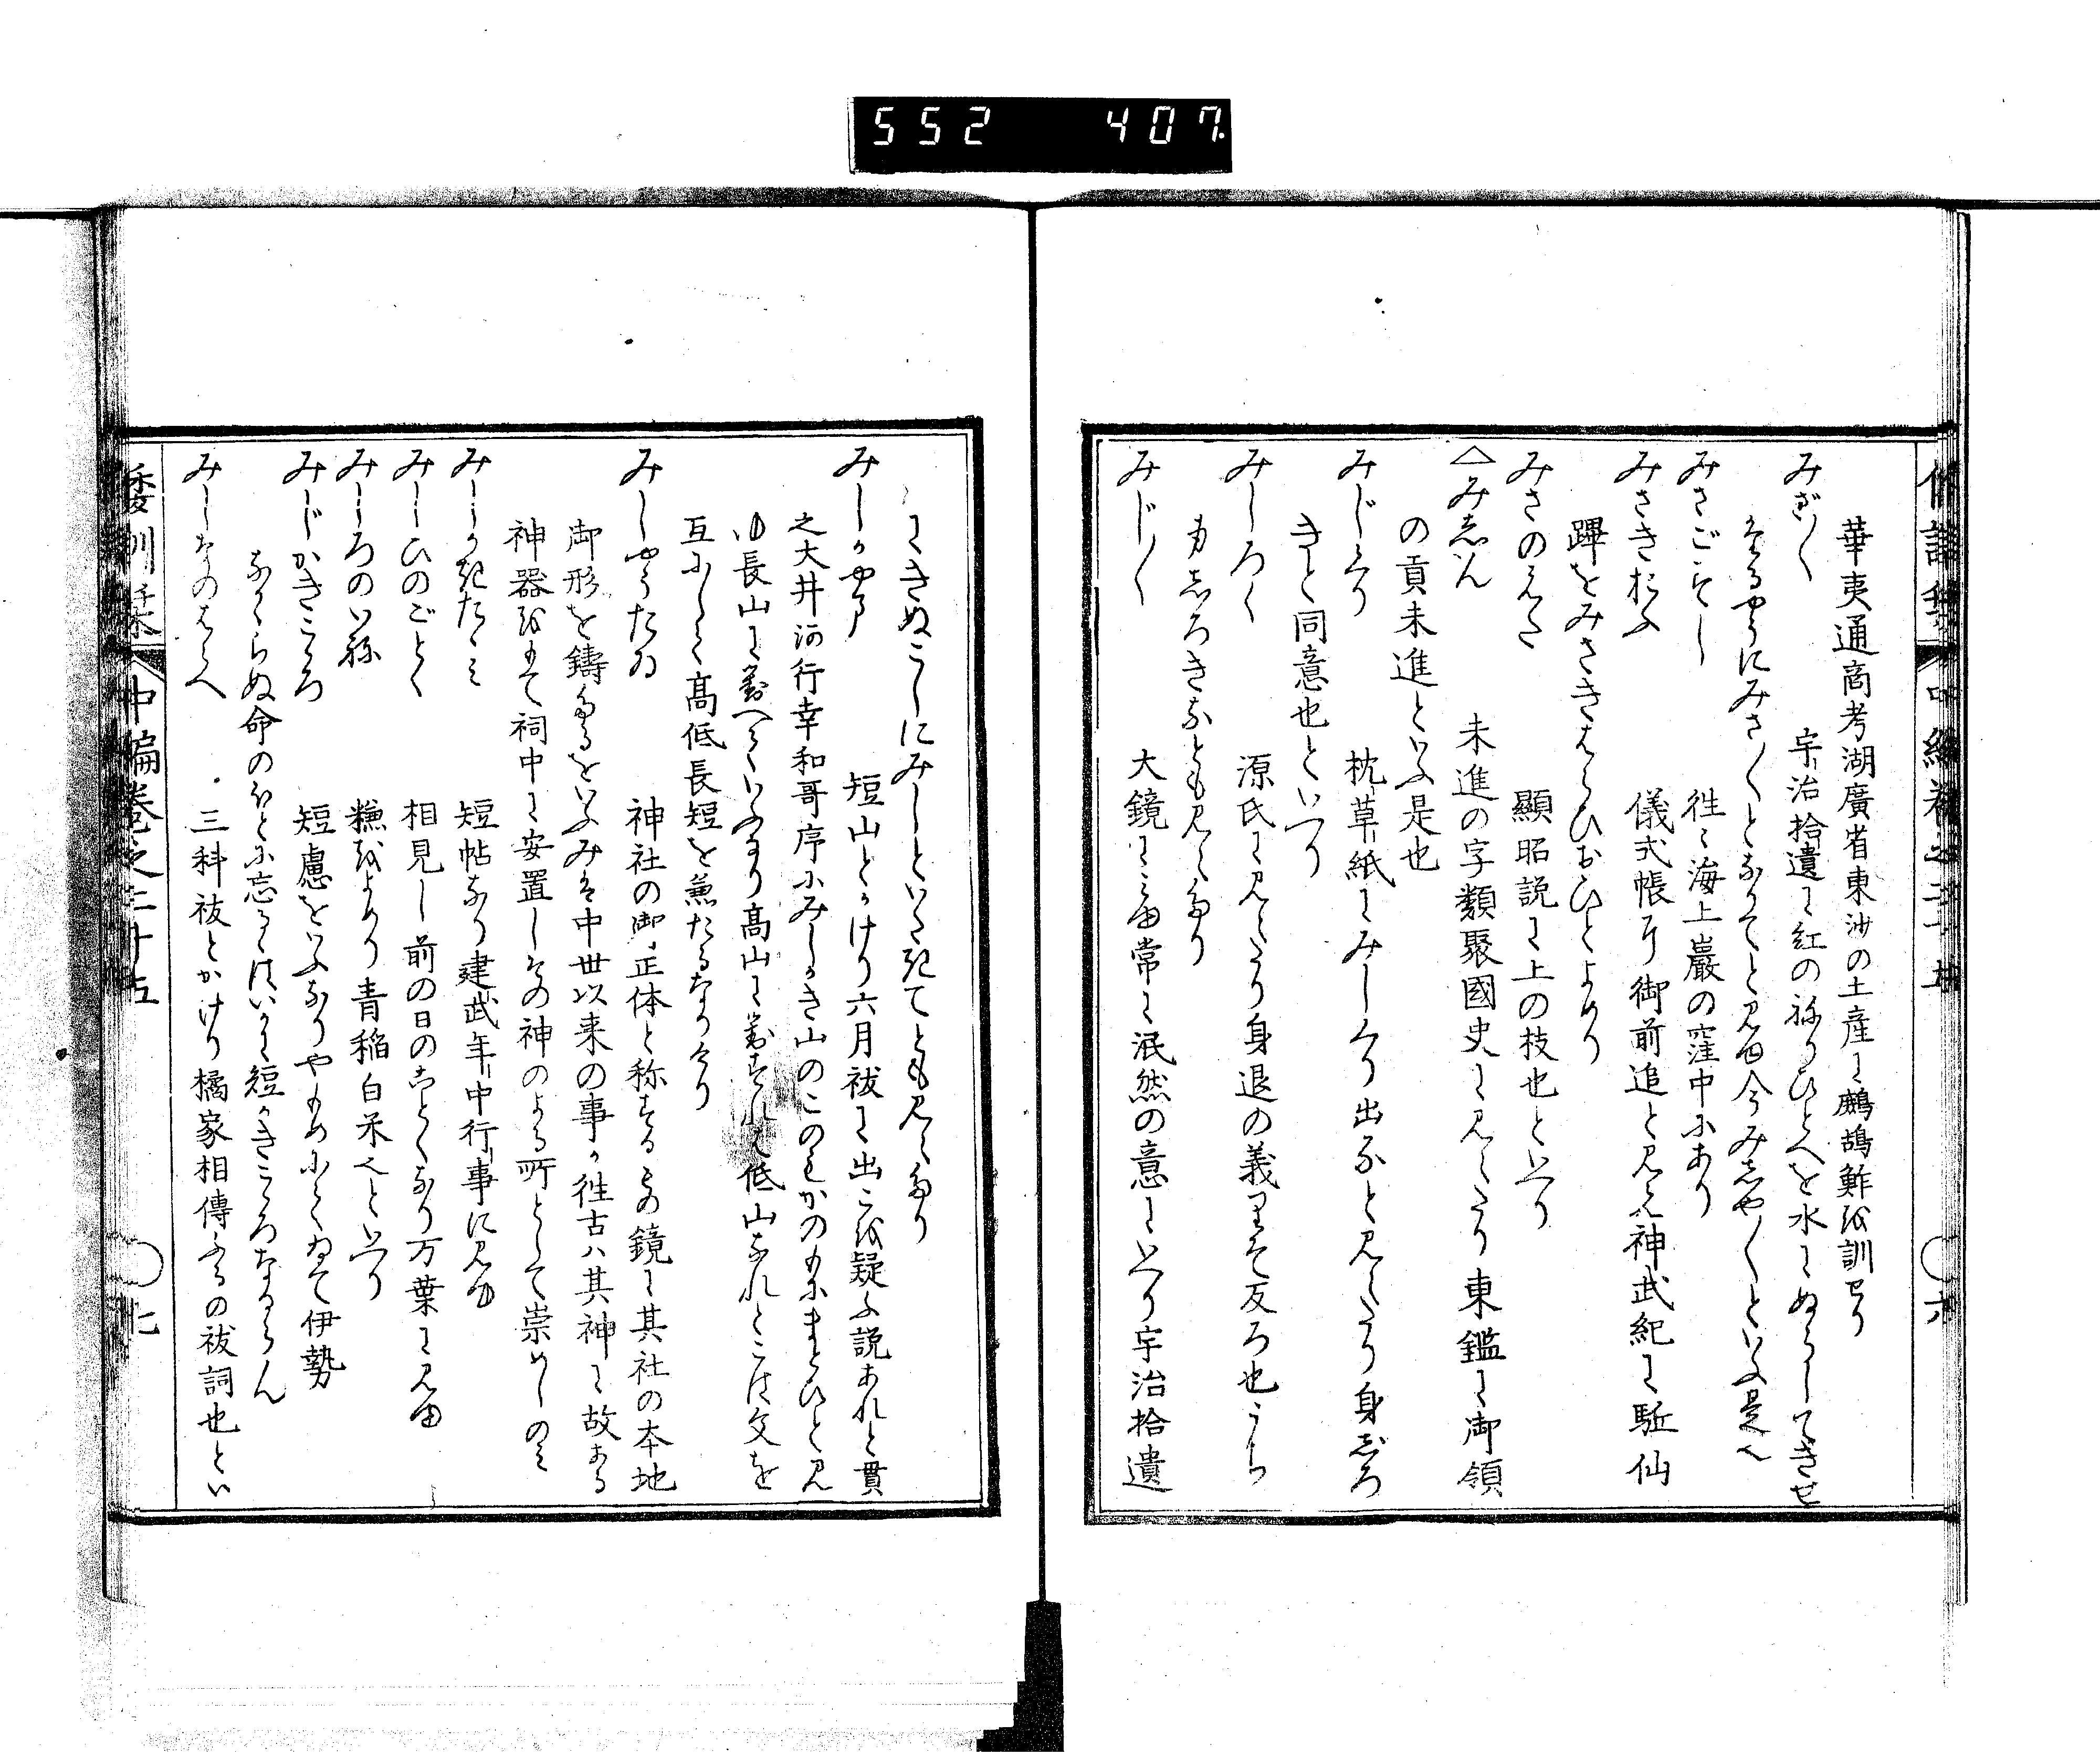 552 407.
華夷通商考湖廣省東沙の土産に鷓鴣鮓を訓せり
みざ〳〵 宇治拾遺に紅の練りひとへを水にぬらしてきせ
たるやうにみさ〳〵となりてと見ゆ今みしや〳〵といふ是也
みさごすし 往々海上巌の窪中にあり
みさきおふ 儀式帳に御前追と見え神武紀に駈仙
蹕をみさきはらひおひとよめり
みさのえた 顯昭説に上の枝也といへり
△みしん 未進の字類聚國史に見えたり東鑑に御領
の貢未進といふ是也
みじくり 枕草紙にみじくり出なと見えたり身じろ
きと同意也といへり
みしろく 源氏に見えたり身退の義にて反ろ也うち
身しろきなとも見えたり
みじ〳〵 大鏡にみゆ常に泯然の意にいへり宇治拾遺
にきぬこしにみしといたきてとも見えたり
みしかやま 短山とかけり六月祓に出これを疑ふ説あれと貫
之大井河行幸和哥序にみしかき山のこのもかのもにまとひと見
ゆ長山に對へていふなり高山に對すれは低山なれとこは文を
互にして高低長短を兼たるなるへし
みしやうたい 神社の御正体と称するもの鏡に其社の本地
御形を鋳たるをいふみな中世以来の事か往古ハ其神に故ある
神器をもて祠中に安置しその神のよる所として崇めしのミ
みしかたゝミ 短帖なり建武年中行事に見ゆ
みしひのごとく 相見し前の日のことくなり万葉に見ゆ
みしろのいね 糠をよめり青稲白米也といへり
みじかきこころ 短慮をいふなりやもめにてゐて伊勢
なからぬ命のほとに忘るゝはいかに短かきこころなるらん
みしなのはらへ 三科祓とかけり橘家相傳ふるの祓詞也とい
倭訓栞 中編巻之二十五 〇七